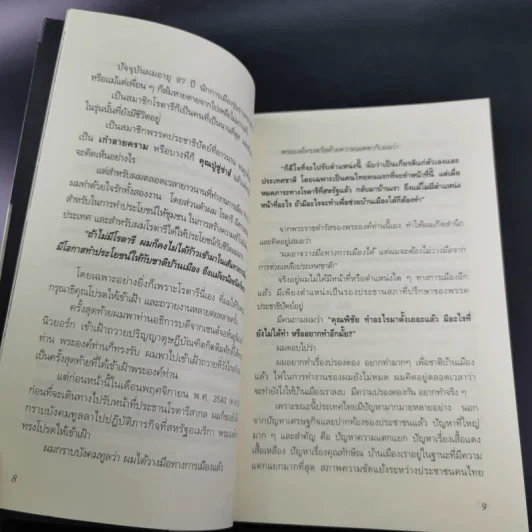 ปัจจุบันผมอายุ 87 ปี นักการเมือง
หรือแม้แต่เพื่อน ๆ ก็ล้มหายตายจากไป
เป็นสมาชิกโรตารีก็เป็นคนที่เป็นนานที่สุด
ในรุ่นนั้นที่ยังมีชีวิตอยู่
เป็นสมาชิกพรรคประชาธิปัตย์ที่ยาวนาน
เป็น เก๋าลายคราม หรือบางทีก็ คุณปู่ชูชาติ
จะคิดเห็นอย่างไร
แต่สำหรับผมตลอดเวลายาวนานที่ทำงานการเมือง
ผมทำด้วยใจรักทั้งสองงาน โดยส่วนตัวผม โรตารี
สำหรับในการทำประโยชน์ให้ชุมชน ในการสร้างความ
ประเทศ และสำหรับผมโรตารีได้ให้ประโยชน์กับชีวิต
"ถ้าไม่มีโรตารี ผมก็คงไม่ได้ก้าวเข้ามาใน
มีโอกาสทำประโยชน์ให้กับชาติบ้านเมือง ถึงแม้จะ
โดยเฉพาะอย่างยิ่งก็เพราะโรตารีนี่เอง ที่
กรุณาธิคุณโปรดให้เข้าเฝ้า และถวายงานหลาย
ครั้งสุดท้ายผมพาท่านอธิการบดีจากเซนต์จอห์น
นิวยอร์ก เข้าเฝ้าถวายปริญญาดุษฎีบัณฑิตกิตติมศักดิ์
ท่าน พระองค์ท่านก็ทรงรับ ผมพาไปเข้าเฝ้าถวายที่
เป็นครั้งสุดท้ายที่ได้เข้าเฝ้าพระองค์ท่าน
แต่ก่อนหน้านี้ในเดือนพฤศจิกายน พ.ศ. 2542
ก่อนที่จะเดินทางไปรับหน้าที่ประธานโรตารีสากล
กราบบังคมทูลลาไปปฏิบัติภารกิจที่สหรัฐอเมริกา
ทรงโปรดให้เข้าเฝ้า
ผมกราบบังคมทูลว่า ผมได้วางมือทางการเมืองแล้ว
8
พระองค์ทรงตรัสด้วยความเมตตากับผมว่า
"ก็ดีใจที่จะไปรับตำแหน่งนี้ นับว่าเป็นเกียรติแก่ตัวเองและ
ประเทศชาติ โดยเฉพาะเป็นคนไทยคนแรกที่จะทำหน้าที่นี้ แต่เมื่อ
หมดภาระทางโรตารีที่สหรัฐแล้ว กลับมาบ้านเรา ถึงแม้ไม่มีตำแหน่ง
หน้าที่อะไร ถ้ามีอะไรจะทำเพื่อช่วยบ้านเมืองได้ก็ต้องทำ"
จากพระราชดำรัสของพระองค์ท่านนี้เอง ทำให้ผมเกิดสำนึก
และคิดอยู่เสมอว่า
"ผมอาจวางมือทางการเมืองได้ แต่ผมจะต้องไม่วางมือจาก
การช่วยเหลือประเทศชาติ"
จริงอยู่ผมไม่ได้มีหน้าที่หรือตำแหน่งใด ๆ ทางการเมืองอีก
แล้ว มีเพียงตำแหน่งเป็นรองประธานสภาที่ปรึกษาของพรรค
ประชาธิปัตย์อยู่
มีคนถามผมว่า "คุณพิชัย ทำอะไรมาตั้งเยอะแล้ว มีอะไรที่
ยังไม่ได้ทำ หรืออยากทำอีกมั้ย?"
ผมตอบไปว่า
ผมอยากทำเรื่องปรองดอง อยากทำมากๆ เพื่อชาติบ้านเมือง
แล้ว ไฟในการทำงานของผมยังไม่หมด ผมคิดอยู่ตลอดเวลาว่า
จะทำยังไงให้บ้านเมืองเราสงบ มีความปรองดองกัน อยากทำจริง ๆ
เพราะขณะนี้ประเทศไทยมีปัญหามากมายหลายอย่าง นอก
จากปัญหาเศรษฐกิจและปากท้องของประชาชนแล้ว ปัญหาที่ใหญ่
มาก ๆ และสำคัญ คือ ปัญหาความแตกแยก ปัญหาเรื่องเสื้อแดง
เสื้อเหลือง ปัญหาเรื่องคุณทักษิณ บ้านเมืองเราอยู่ในฐานะที่มีความ
แตกแยกมากที่สุด สภาพความขัดแย้งระหว่างประชาชนคนไทย
9